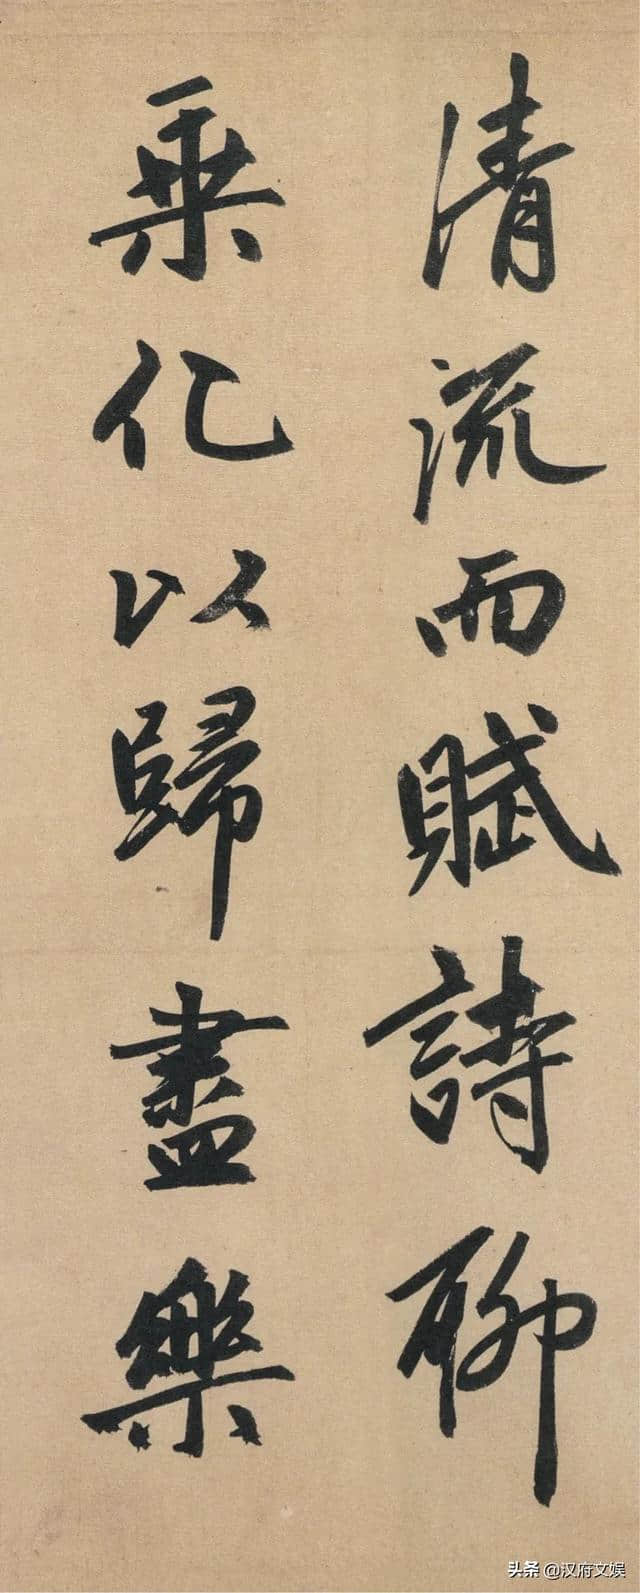 清流而賦詩聊
乘化以歸盡樂
头条 @汉府文娱